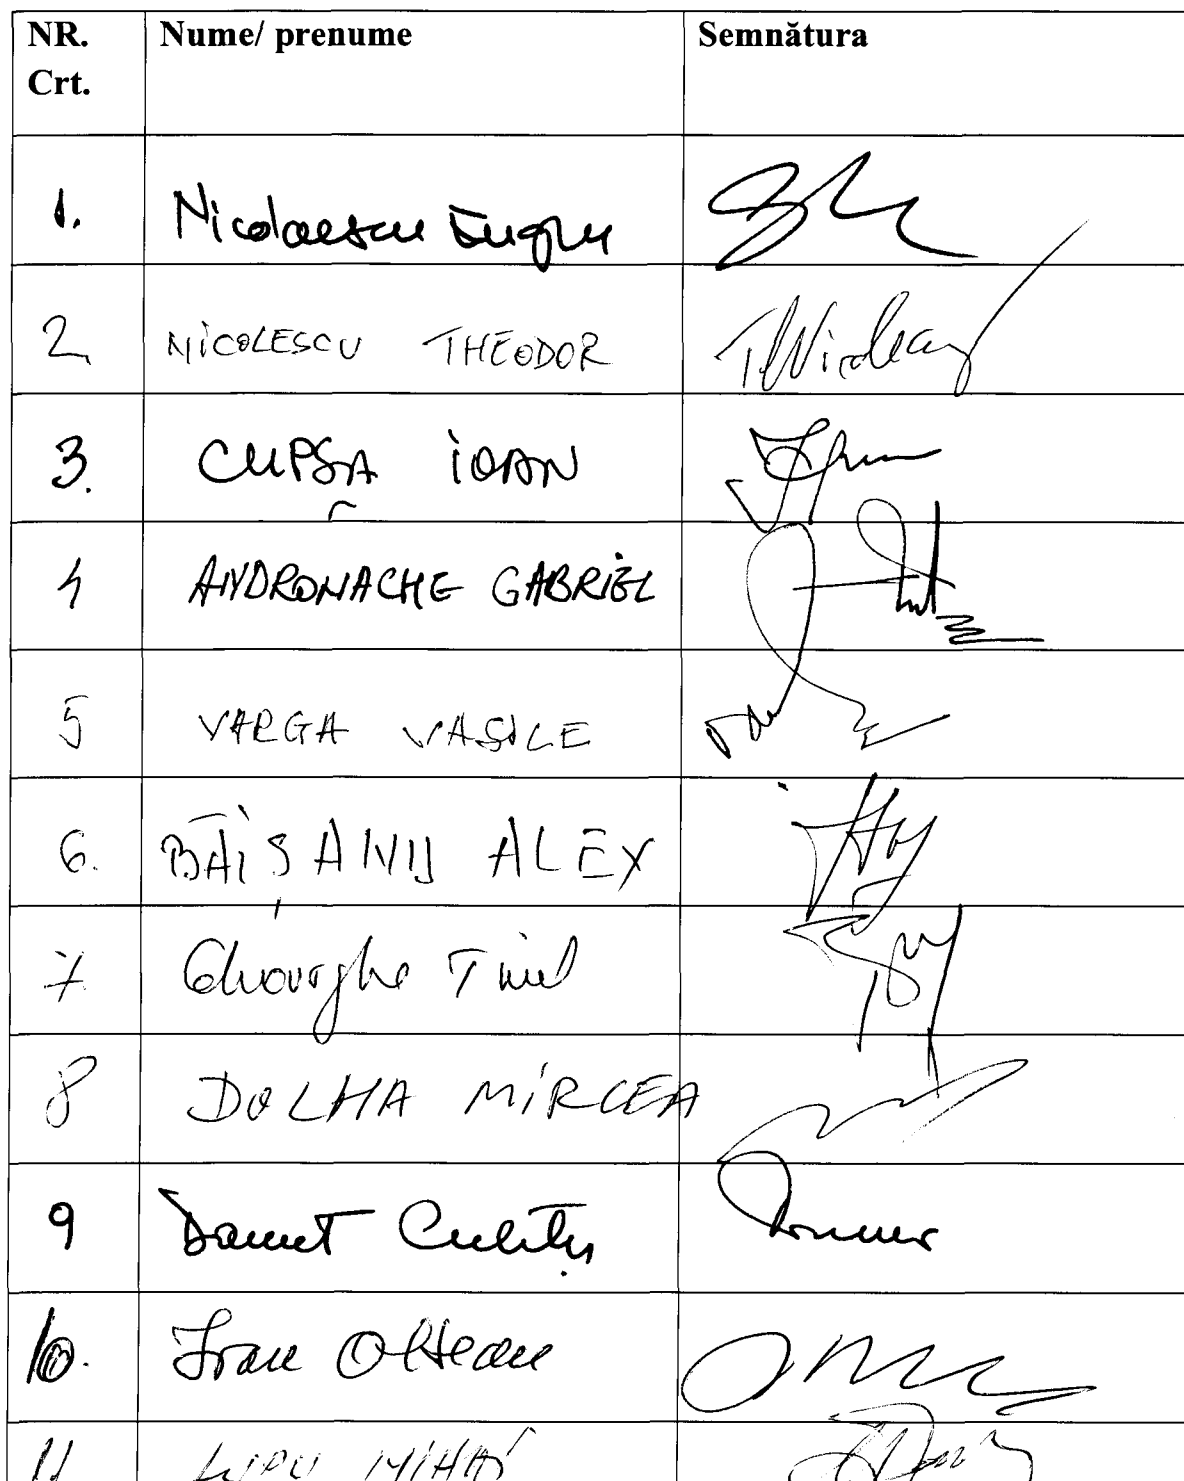 NR. Crt. Nume/ prenume Semnătura
1. Nicolaescu Eugen
2 NICOLESCU THEODOR
3. CUPȘA IOAN
4 ANDRONACHE GABRIEL
5 VARGA VASILE
6. BĂIȘANU ALEX
7. Gheorghe Tinel
8 DOLHA MIRCEA
9 
10. Ioan Oltean
11 LUPU MIHAI